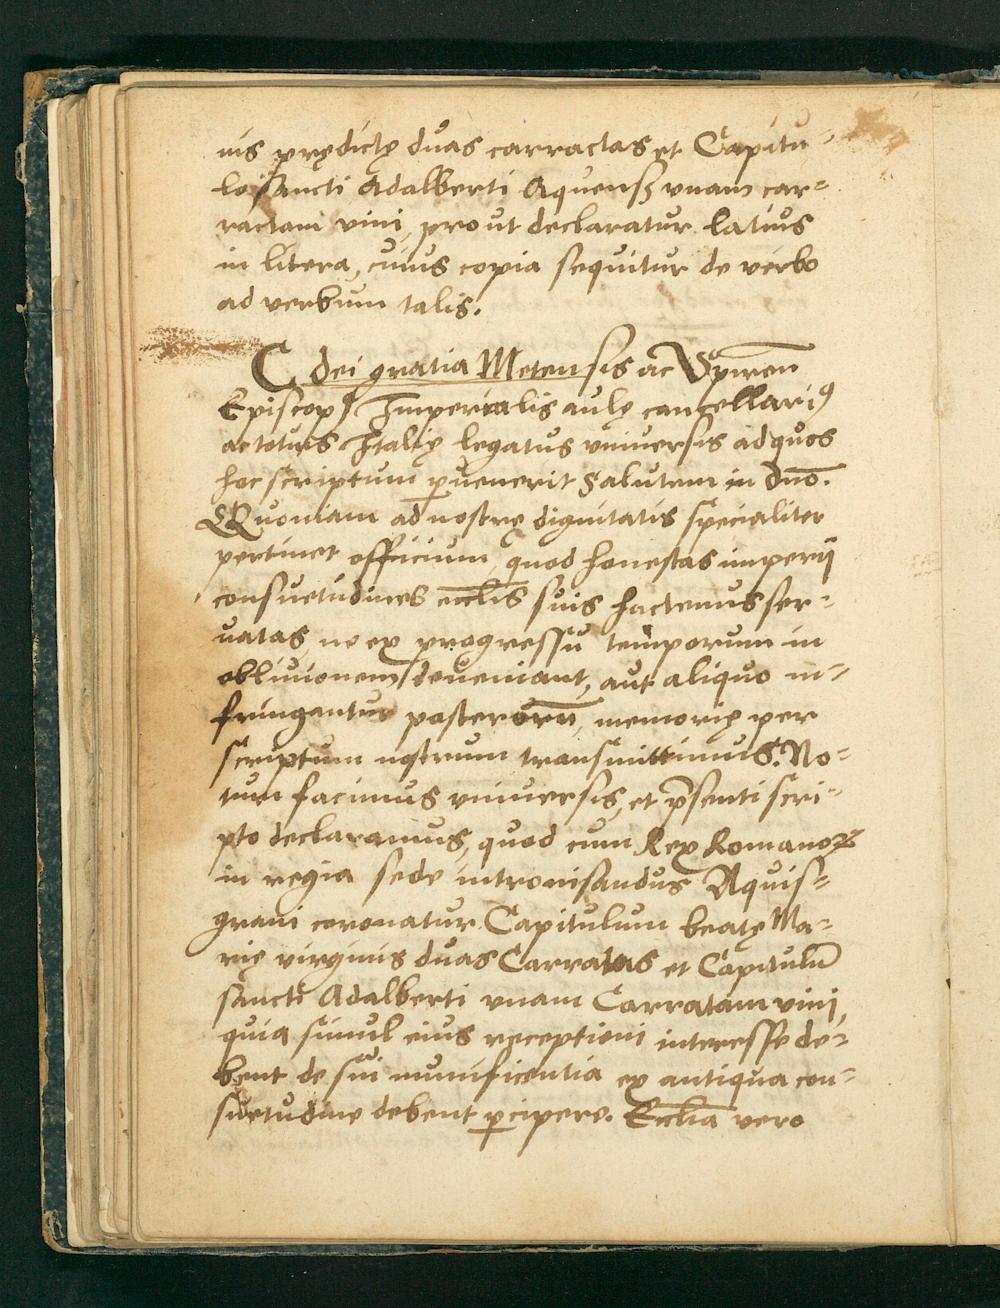 nis prędictę duas carractas et Capitu-
lo sancti Adalberti Aquensß vnam car-
ractam vini, prout declaratur latius
in litera, cuius copia sequitur de verbo
ad verbum talis.
C dei gratia Metensis ac Spiren̄
Episcopꝰ Imperialis aulę cancellariꝰ
ac totius Italię legatus vniuersis ad quos
hoc scriptum ꝑuenerit Salutem in dn̄o.
Quoniam ad nostrę dignitatis specialiter
pertinet officium, quod honestas imperij
consuetudines eccl̄is suis hactenus ser-
uatas, ne ex progressu temporum in
obliuionem deueniant, aut aliquo in-
fringantur posterorū, memorię per
scriptum nostrum transmittimus. No-
tum facimus vniuersis, et p̄senti scri-
pto declaramus, quod cum Rex Romanoꝝ
in regia sede intronisandus Aquis-
grani coronatur Capitulum beatę Ma-
rię virginis duas Carratas et Capitulū
sancti Adalberti vnam Carratam vini,
quia simul eius receptioni interesse de-
bent de sui munificentia ex antiqua con-
suetudine debent ꝑcipere. Eccl̄ia vero